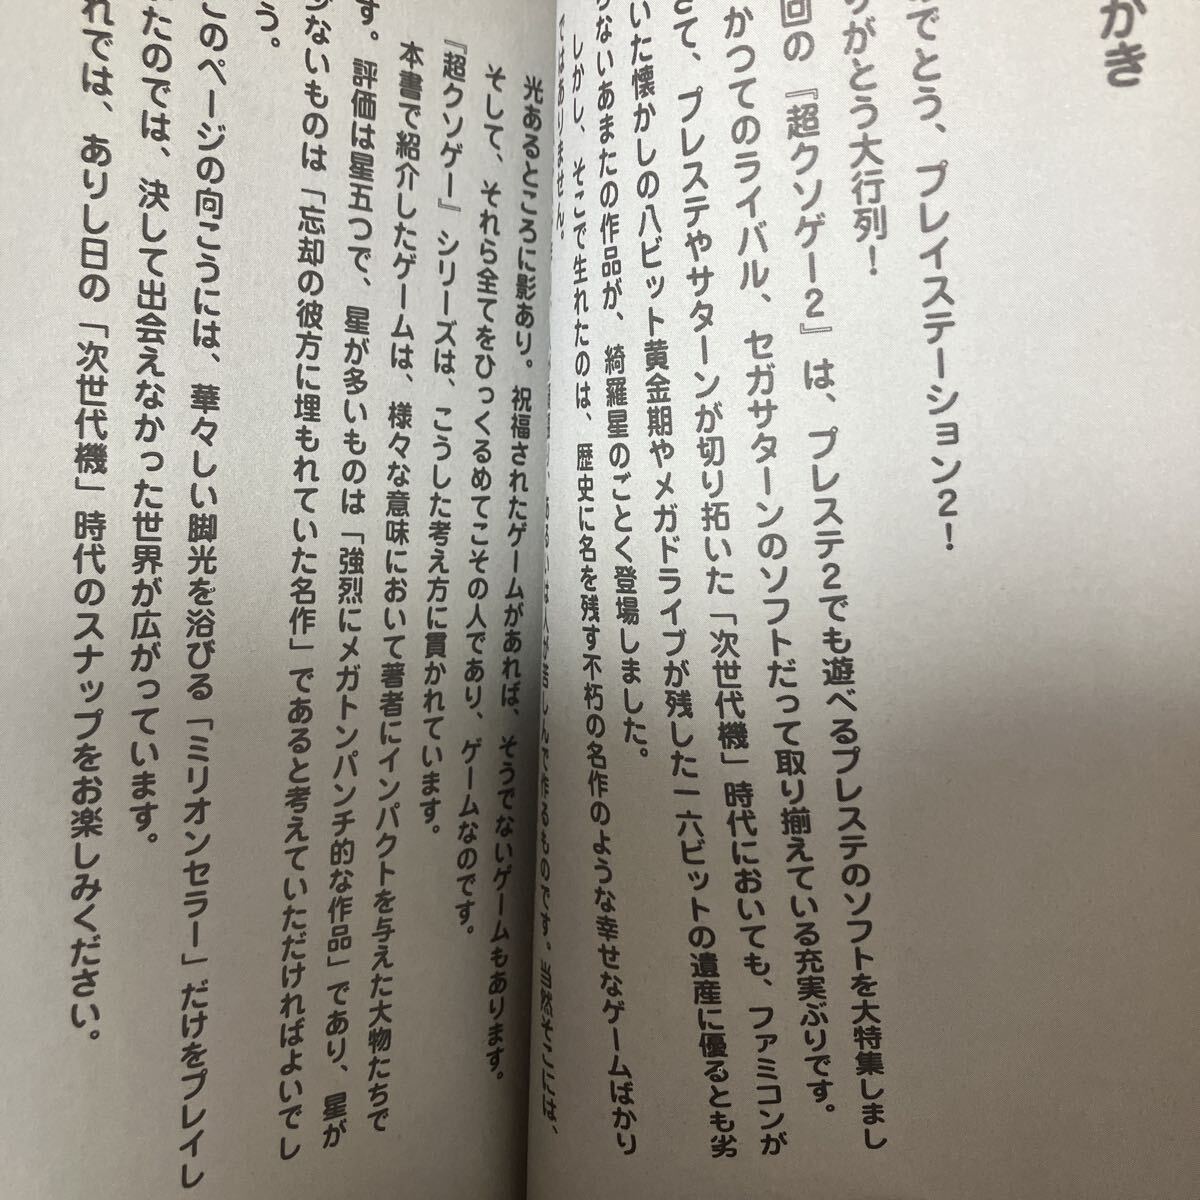 がき
でとう、プレイステーション2！
がとう大行列！
回の『超クソゲー2』は、プレステ2でも遊べるプレステのソフトを大特集しまし
かつてのライバル、セガサターンのソフトだって取り揃えている充実ぶりです。
さて、プレステやサターンが切り拓いた「次世代機」時代においても、ファミコンが
いた懐かしの八ビット黄金期やメガドライブが残した一六ビットの遺産に優るとも劣
らないあまたの作品が、綺羅星のごとく登場しました。
しかし、そこで生れたのは、歴史に名を残す不朽の名作のような幸せなゲームばかり
ではありません。
あるいは人が苦しんで作るものです。当然そこには、
光あるところに影あり。祝福されたゲームがあれば、そうでないゲームもあります。
そして、それら全てをひっくるめてこその人であり、ゲームなのです。
『超クソゲー』シリーズは、こうした考え方に貫かれています。
本書で紹介したゲームは、様々な意味において著者にインパクトを与えた大物たちで
す。評価は星五つで、星が多いものは「強烈にメガトンパンチ的な作品」であり、星が
ないものは「忘却の彼方に埋もれていた名作」であると考えていただければよいでし
う。
このページの向こうには、華々しい脚光を浴びる「ミリオンセラー」だけをプレイし
たのでは、決して出会えなかった世界が広がっています。
れでは、ありし日の「次世代機」時代のスナップをお楽しみください。